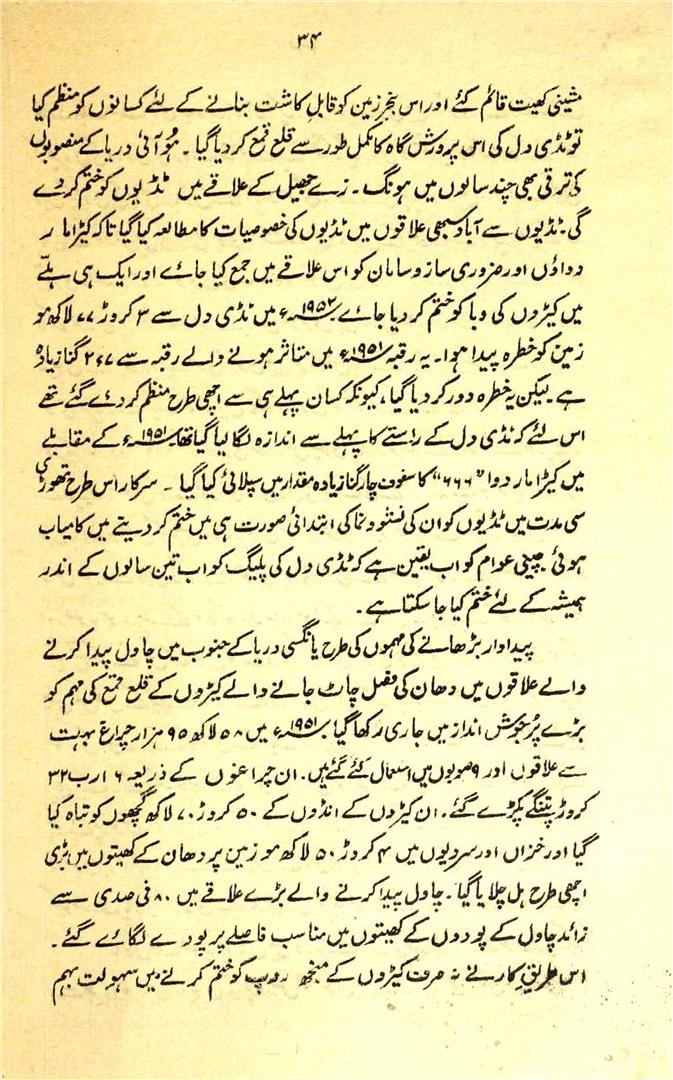 ۳۴
مشینی کھیت قائم کئے اور اس بنجر زمین کو قابل کاشت بنانے کے لئے کسانوں کو منظم کیا
تو ٹڈی دل کی اس پرورش گاہ کا مکمل طور سے قلع قمع کر دیا گیا ۔ ہُو آئی دریا کے منصوبوں
کی ترقی بھی چند سالوں میں ہونگ ۔ زے جھیل کے علاقے میں ٹڈیوں کو ختم کر دے
گی ۔ ٹڈیوں سے آباد سبھی علاقوں میں ٹڈیوں کی خصوصیات کا مطالعہ کیا گیا تاکہ کیڑا مار
دواؤں اور ضروری سازو سامان کو اس علاقے میں جمع کیا جائے اور ایک ہی ہلّے
میں کیڑوں کی وبا کو ختم کر دیا جائے ۱۹۵۲ء میں ٹڈی دل سے ۳ کروڑ ۷۷ لاکھ مو
زمین کو خطرہ پیدا ہوا ۔ یہ رقبہ ۱۹۵۱ء میں متاثر ہونے والے رقبہ سے ۲ء۷ گنا زیادہ
ہے ۔ لیکن یہ خطرہ دور کر دیا گیا ، کیونکہ کسان پہلے ہی سے اچھی طرح منظم کر دئے گئے تھے
اس لئے کہ ٹڈی دل کے راستے کا پہلے سے اندازہ لگا لیا گیا تھا ۔ ۱۹۵۱ء کے مقابلے
میں کیڑا مار دوا ”۶۶۶“ کا سفوف چار گنا زیادہ مقدار میں سپلائی کیا گیا ۔ سرکار اس طرح تھوڑی
سی مدت میں ٹڈیوں کو ان کی نشوونما کی ابتدائی صورت ہی میں ختم کر دینے میں کامیاب
ہوئی ۔ چینی عوام کو اب یقین ہے کہ ٹڈی دل کی پلیگ کو اب تین سالوں کے اندر
ہمیشہ کے لئے ختم کیا جا سکتا ہے ۔
پیداوار بڑھانے کی مہموں کی طرح یانگسی دریا کے جنوب میں چاول پیدا کرنے
والے علاقوں میں دھان کی فصل چاٹ جانے والے کیڑوں کے قلع قمع کی مہم کو
بڑے پُرجوش انداز میں جاری رکھا گیا ۔ ۱۹۵۱ء میں ۵۸ لاکھ ۹۵ ہزار چراغ بہت
سے علاقوں اور ۹ صوبوں میں استعمال کئے گئے ہیں ۔ ان چراغوں کے ذریعہ ۶ ارب ۳۲
کروڑ پتنگے پکڑے گئے ۔ ان کیڑوں کے انڈوں کے ۵۰ کروڑ ۷۰ لاکھ گچھوں کو تباہ کیا
گیا اور خزاں اور سردیوں میں ۴ کروڑ ۵۰ لاکھ مو زمین پر دھان کے کھیتوں میں بڑی
اچھی طرح ہل چلایا گیا ۔ چاول پیدا کرنے والے بڑے علاقے میں ۸۰ فی صدی سے
زائد چاول کے پودوں کے کھیتوں میں مناسب فاصلے پر پودے لگائے گئے ۔
اس طریقِ کار نے نہ صرف کیڑوں کے روپ کو ختم کرنے میں سہولت بہم